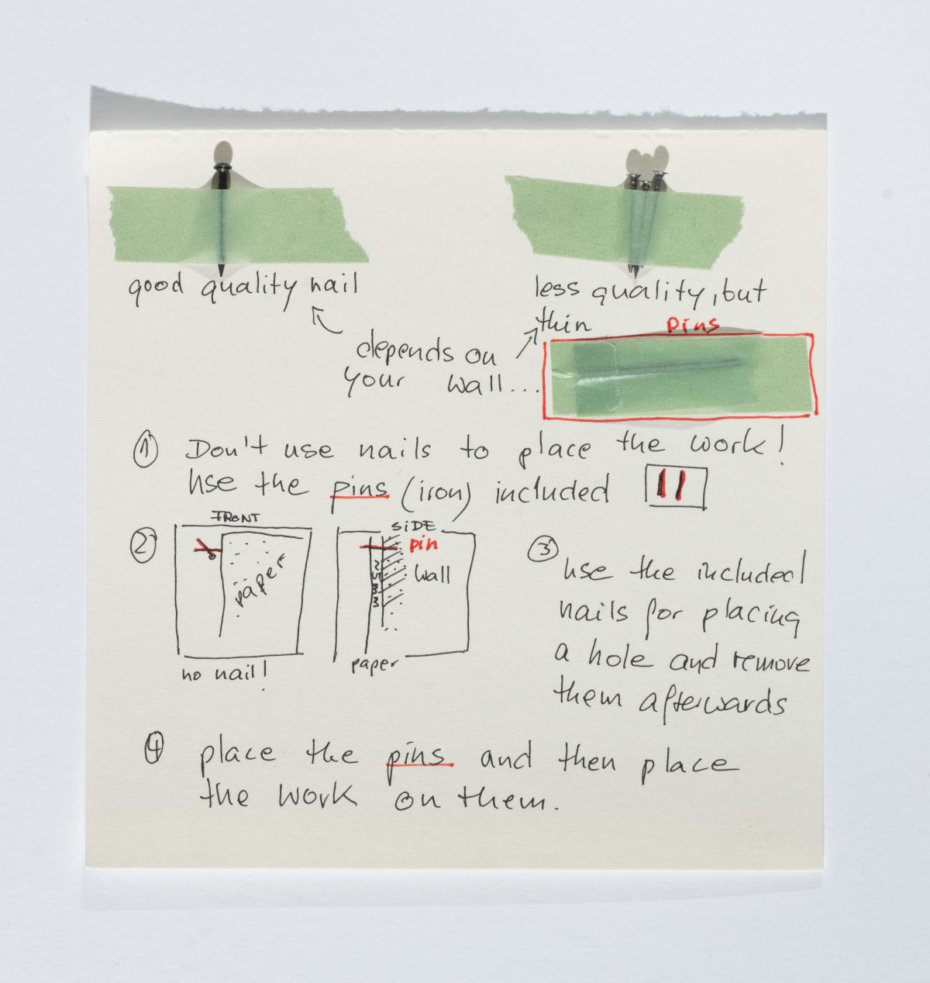 good quality nail
less quality, but
thin
pins
depends on
your wall...
① Don't use nails to place the work!
use the pins (iron) included
② FRONT
paper
no nail!
SIDE
pin
wall
paper
③ use the included
nails for placing
a hole and remove
them afterwards
④ place the pins and then place
the work on them.